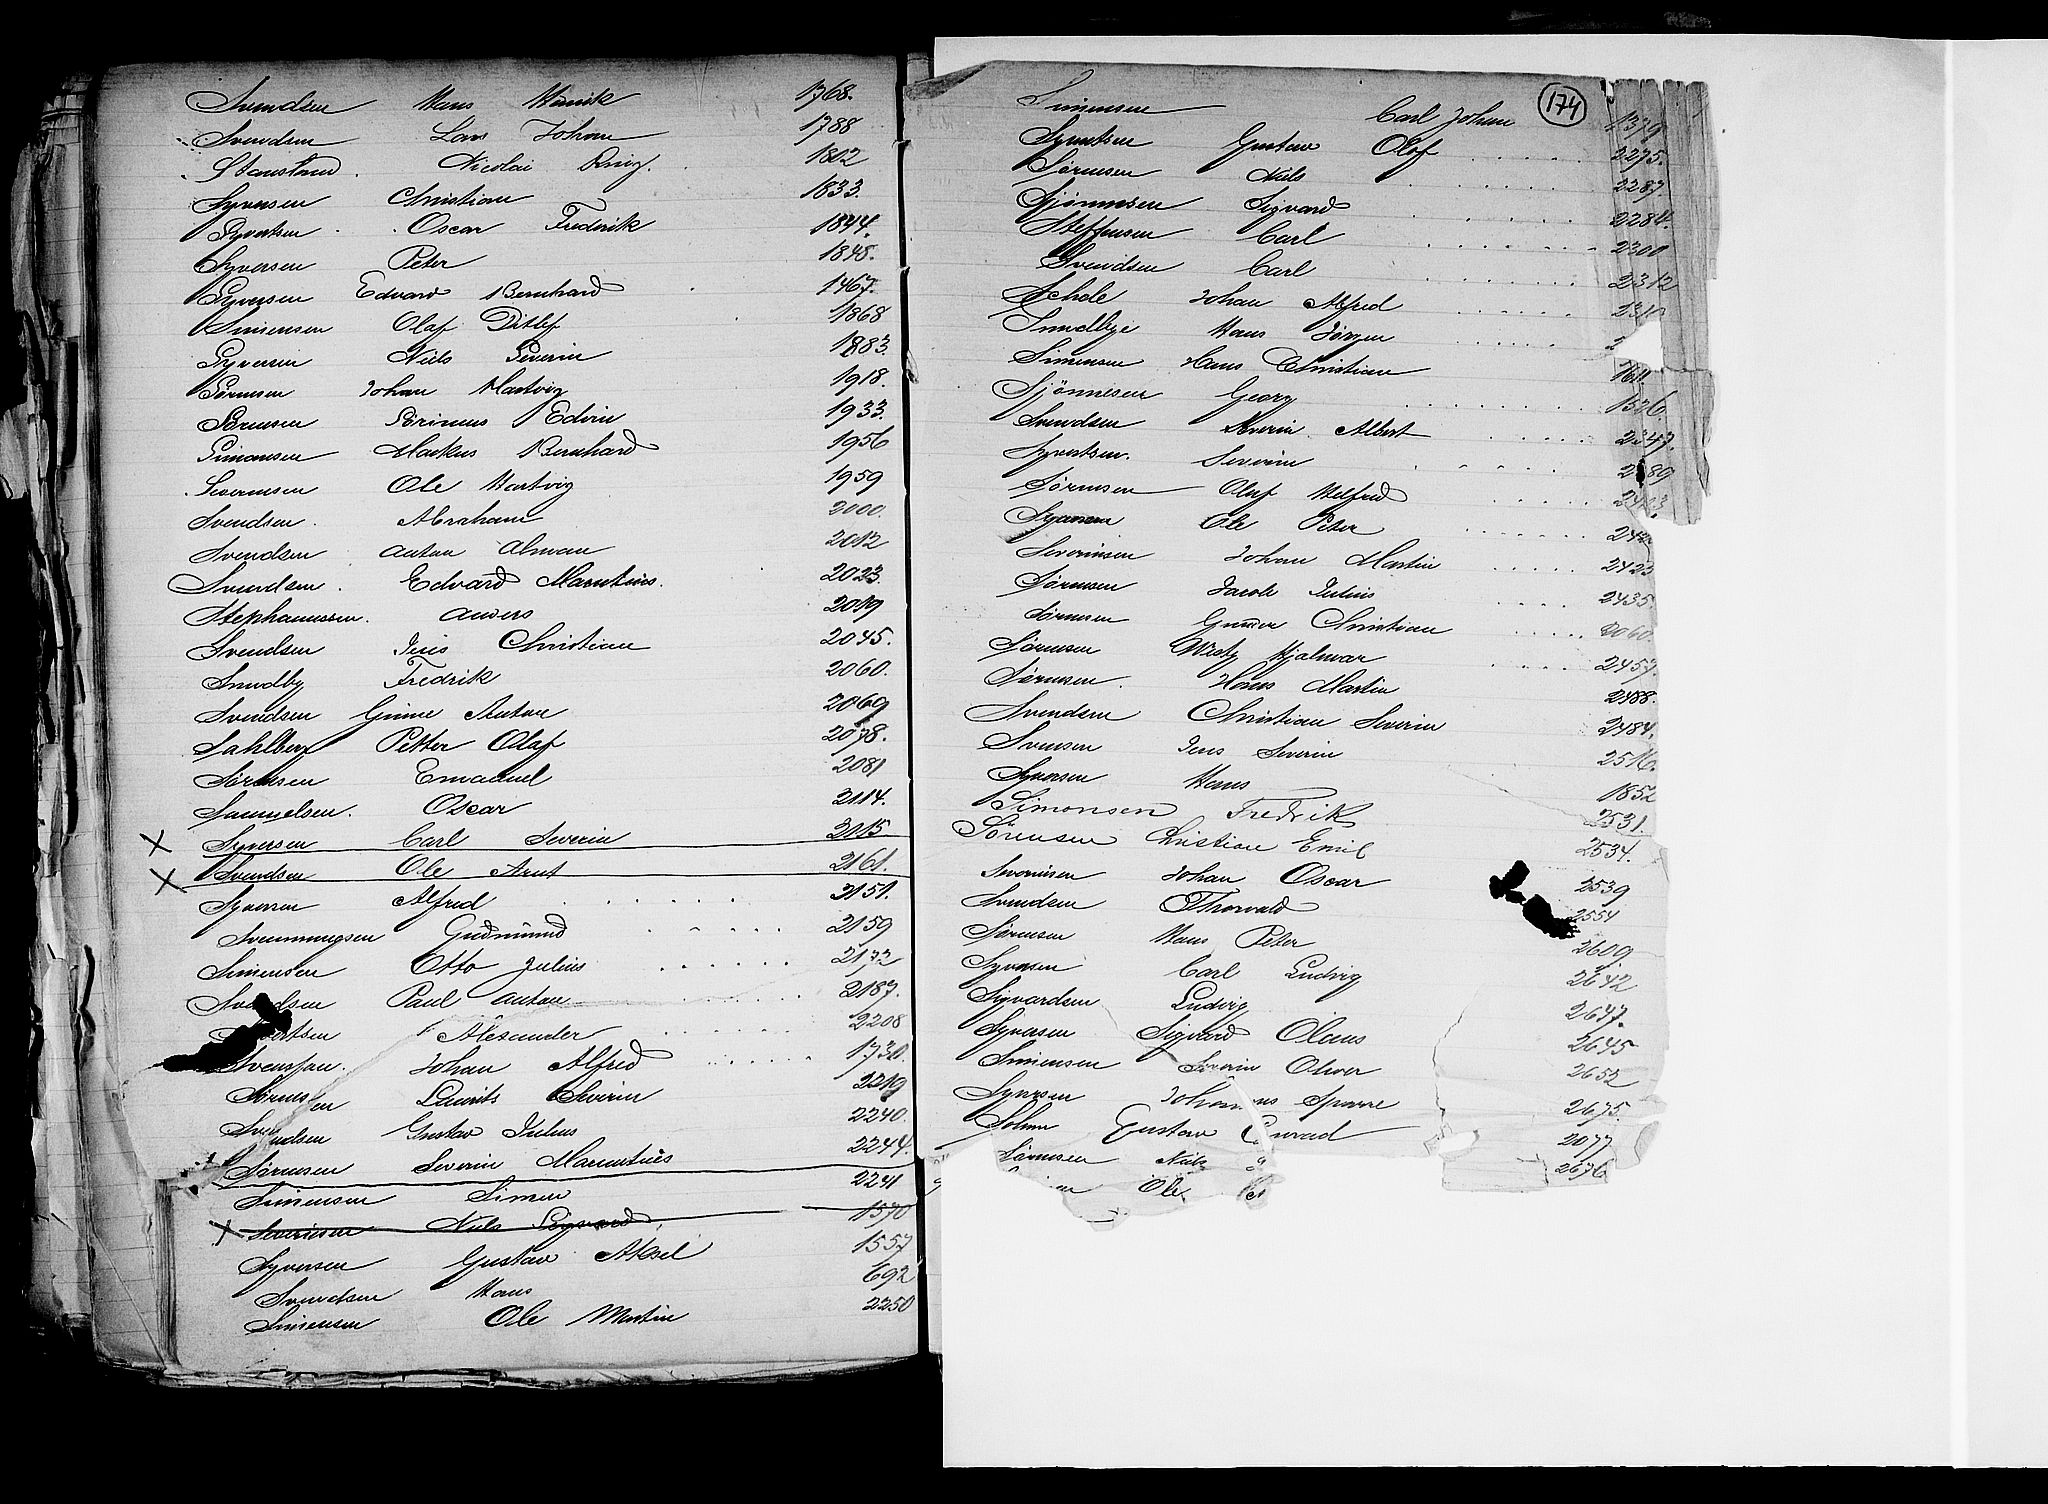 Svendsen Hans Henrik 1768.
Svendsen Lars Johan 1788
Nicolai 1802
Syversen Christian 1833.
Syvertsen Oscar Fredrik 1844.
Syversen Peter 1848.
Syversen Edvard Bernhard 1467.
Simensen Olaf Ditlef 1868
Syversen Niels Severin 1883.
Sørensen Johan Hartvig 1918.
Sørensen Sørinius Edvin 1933.
Simonsen Markus Bernhard 1956
Severinsen Ole Hartvig 1959
Svendsen. Abraham 2000.
Svendsen Anton 2012
Svendsen. Edvard Marentius. 2023.
Stephanussen. Anders 2019
Svendsen Jens Christian 2045.
Sundby Fredrik 2060.
Svendsen Anton 2069
Sahlberg Petter Olaf 2078.
Sørensen Emanuel 2081
Samuelsen. Oscar 2114.
X Syversen Carl Severin 2115
X Svendsen Ole Arnt 2161.
Syversen Alfred 2151.
Svenningsen Gudmund 2159
Simensen Otto Julius 2172
Svendsen Paul Anton 2187.
Alexander 2208
Johan Alfred 1730.
Sørensen Laurits Severin 2219
Svendsen Gustav Julius 2240.
Sørensen Severin Marentius 2244.
Simensen Simen 2241
X Severinsen Niels Sigvard. 1570
Syversen Gustav Aksel 1557
Svendsen Hans 692
Simensen Ole Martin 2250
174
Simensen Carl Johan 1379
Syvertsen Gustav Olaf 2275.
Sørensen Niels 2287.
Sjønnesen Sigvard 2284.
Steffensen Carl 2300
Svendsen Carl 2312
Schele Johan Alfred
Sundbye Hans Jørgen
Simensen Hans Christian 1611.
Sjønnesen Georg 1526
Svendsen Severin Albert 2347.
Syvertsen. Severin
Sørensen Olaf Helfred
Syversen Ole Peter
Severinsen Johan Martin 2423
Sørensen Jacob Julius 2435.
Sørensen Gunder Christian 2060.
Sørensen Hjalmar 2457.
Sørensen. Hans Martin 2488.
Svendsen Christian Severin 2484.
Svensen Jens Severin 2516.
Syversen Hans 1852
Simonsen Fredrik 2531.
Sørensen Christian Emil 2534.
Severinsen Johan Oscar 2539
Svendsen Thorvald 2554
Sørensen Hans Peter 2609
Syversen Carl Ludvig 2642
Sigvardsen Ludvig 2647.
Syversen Sigvard Olaus 2645
Simensen Severin Oliver 2652
Syversen Sparre 2675.
Solum Gustav Conrad 2077
Sørensen Niels 2676
Ole